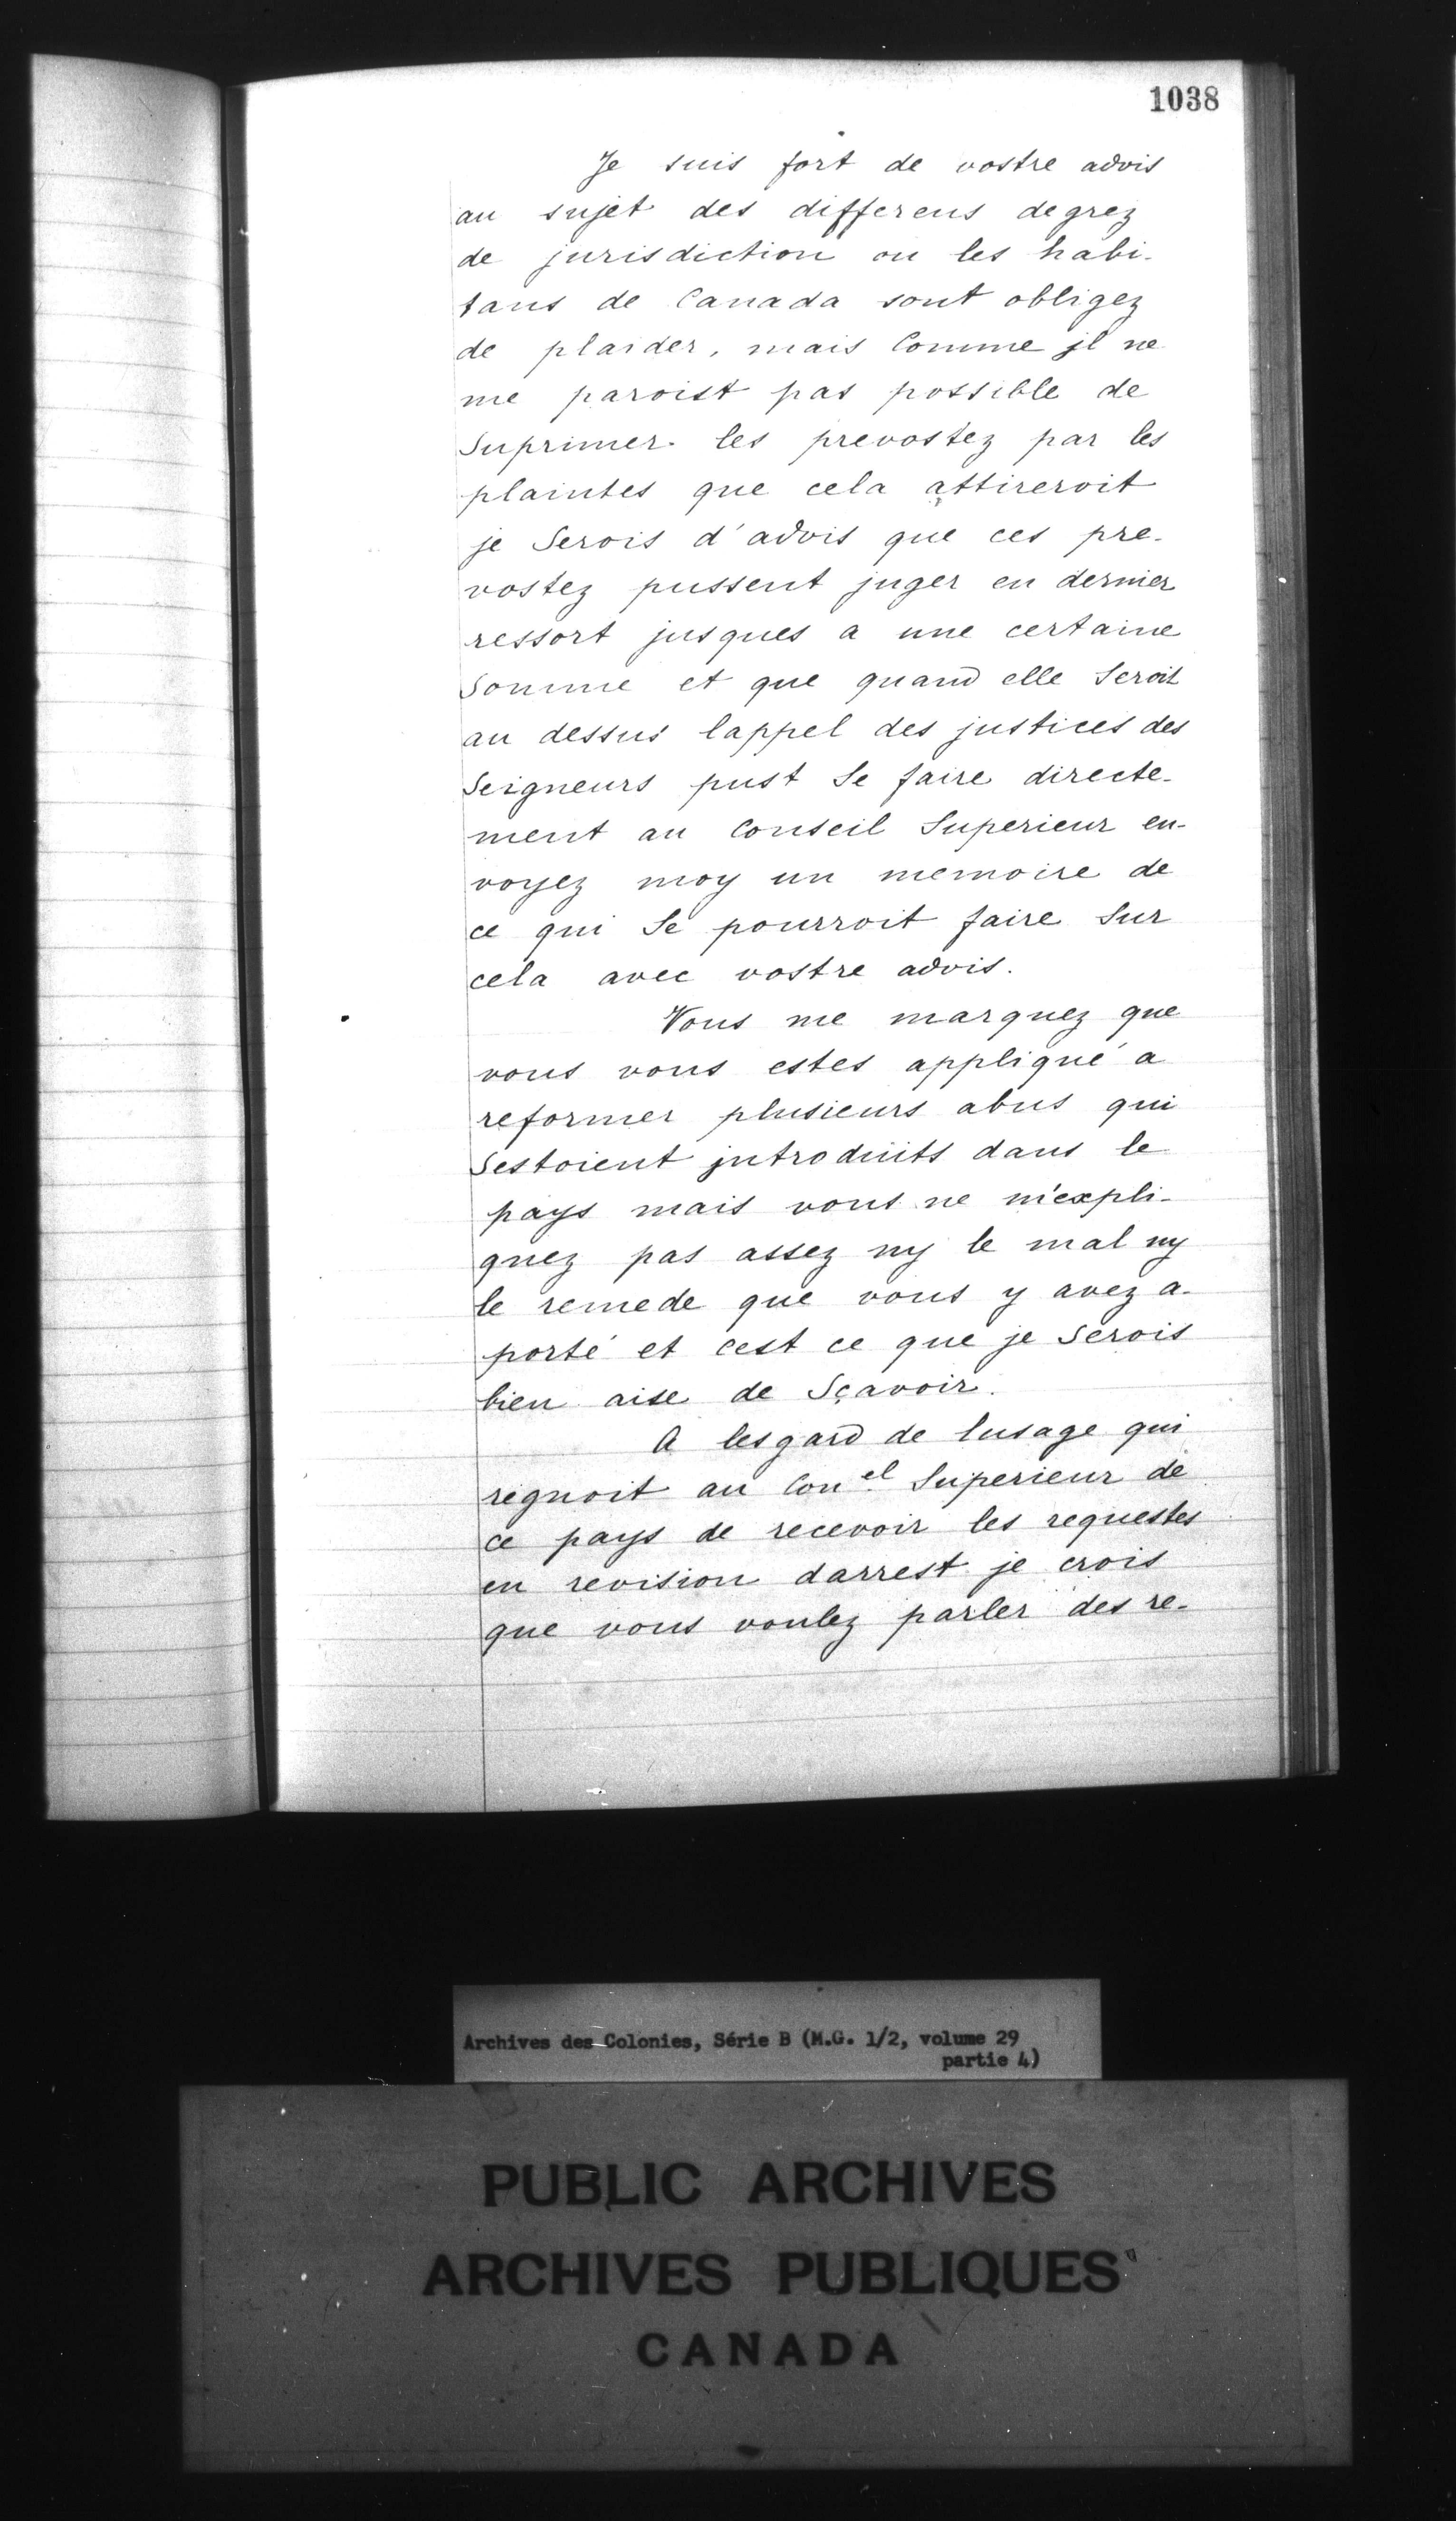 1038
Je suis fort de vostre advis
au sujet des differens degrez
de jurisdiction ou les habi-
tans de Canada sont obligez
de plaider, mais Comme jl ne
me paroist pas possible de
Suprimer les prevostez par les
plaintes que cela attireroit
je Serois d'advis que ces pre-
vostez pussent juger en dernier
ressort jusques a une certaine
Somme et que quand elle Seroit
au dessus lappel des justices des
Seigneurs pust Se faire directe-
ment au Conseil Superieur en-
voyez moy un memoire de
ce qui Se pourroit faire Sur
cela avec vostre advis.
Vous me marquez que
vous vous estes appliqué a
reformer plusieurs abus qui
Sestoient jntroduits dans le
pays mais vous ne m'expli-
quez pas assez ny le mal ny
le remede que vous y avez a-
porté et cest ce que je Serois
bien aise de Sçavoir.
A lesgard de lusage qui
regnoit au Con.el Superieur de
ce pays de recevoir les requestes
en revision darrest je crois
que vous voulez parler des re-
Archives des Colonies, Série B (M.G. 1/2, volume 29
partie 4)
PUBLIC ARCHIVES
ARCHIVES PUBLIQUES
CANADA